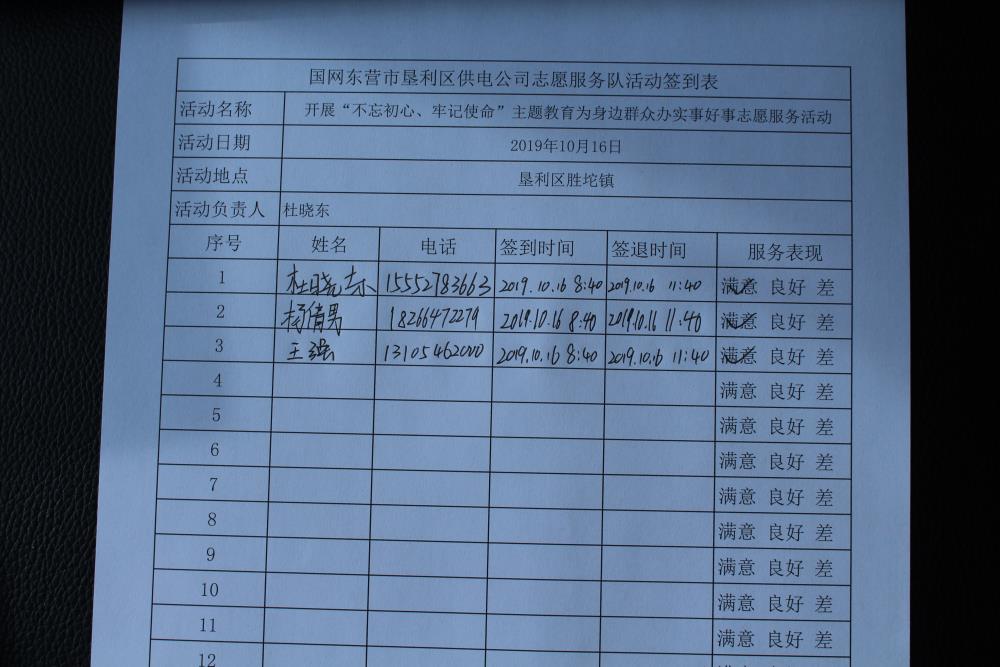 国网东营市垦利区供电公司志愿服务队活动签到表
活动名称 开展“不忘初心、牢记使命”主题教育为身边群众办实事好事志愿服务活动
活动日期 2019年10月16日
活动地点 垦利区胜坨镇
活动负责人 杜晓东
序号 姓名 电话 签到时间 签退时间 服务表现
1 杜晓东 15552783663 2019.10.16 8:40 2019.10.16 11:40 满意 良好 差
2 杨倩男 18266472279 2019.10.16 8:40 2019.10.16 11:40 满意 良好 差
3 王强 13105462000 2019.10.16 8:40 2019.10.16 11:40 满意 良好 差
4 满意 良好 差
5 满意 良好 差
6 满意 良好 差
7 满意 良好 差
8 满意 良好 差
9 满意 良好 差
10 满意 良好 差
11 满意 良好 差
12